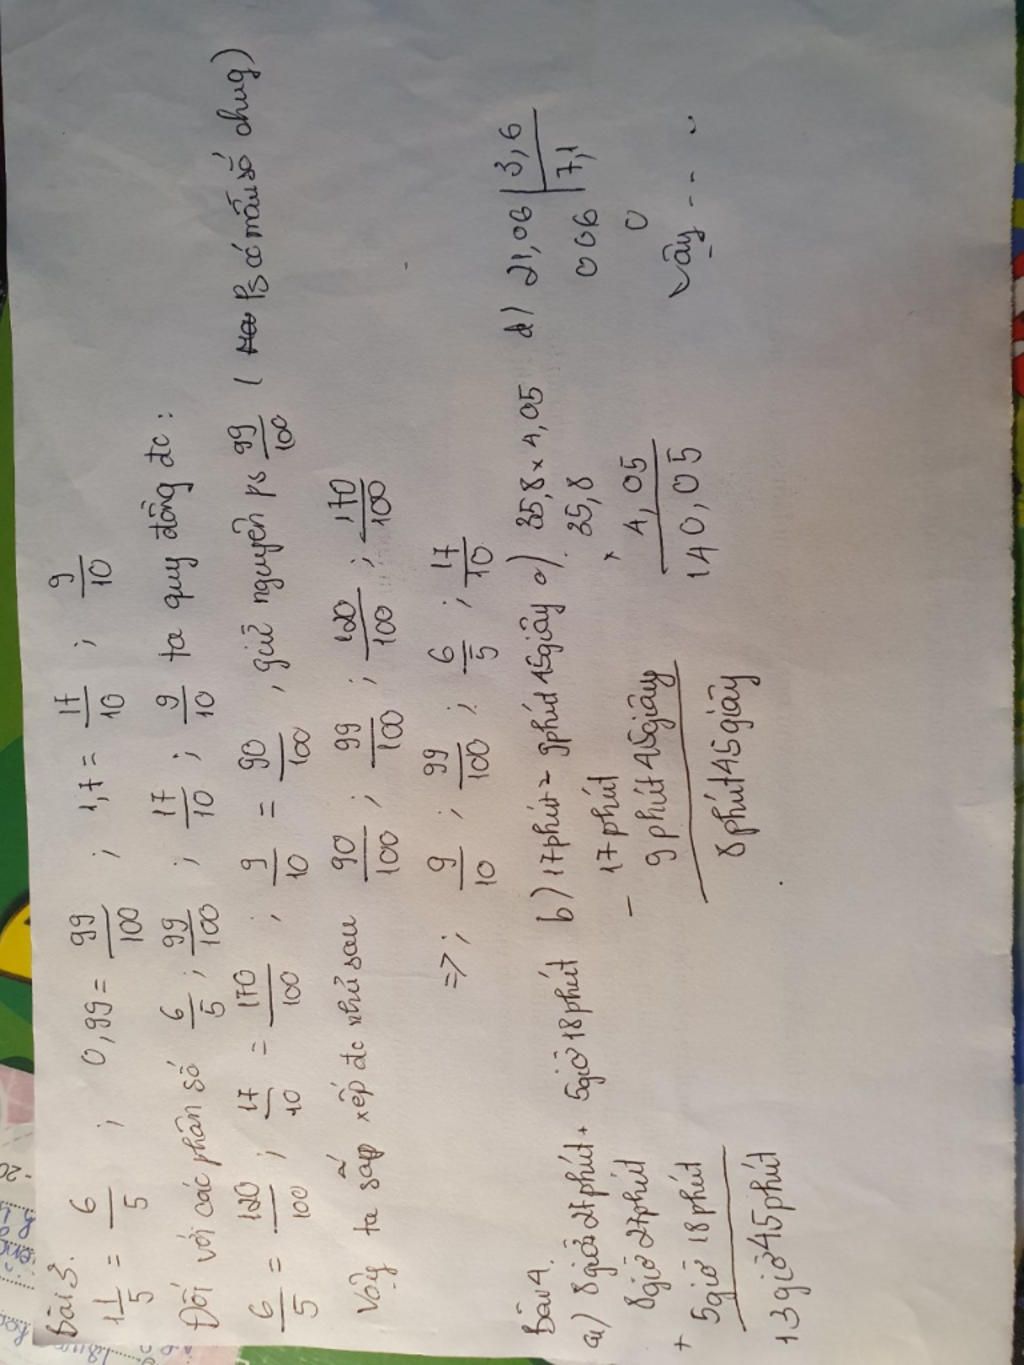 Bài 3.
1 1/5 = 6/5 ; 0,99 = 99/100 ; 1,7 = 17/10 ; 9/10
Đối với các phân số 6/5 ; 99/100 ; 17/10 ; 9/10 ta quy đồng đc :
6/5 = 120/100 ; 17/10 = 170/100 ; 9/10 = 90/100 , giữ nguyên ps 99/100 ( Ps có mẫu số chung)
Vậy ta sắp xếp đc như sau 90/100 ; 99/100 ; 120/100 ; 170/100
=> ; 9/10 ; 99/100 ; 6/5 ; 17/10
Bài 4.
a) 8giờ 27phút + 5giờ 18phút
8giờ 27phút
+
5giờ 18phút
13giờ 45phút
b) 17phút - 9phút 45giây
- 17phút
9phút 45giây
8phút 45giây
c) 35,8 x 4,05
35,8
x
4,05
140,05
d) 21,06 | 3,6
006 | 7,1
0
Vậy ...